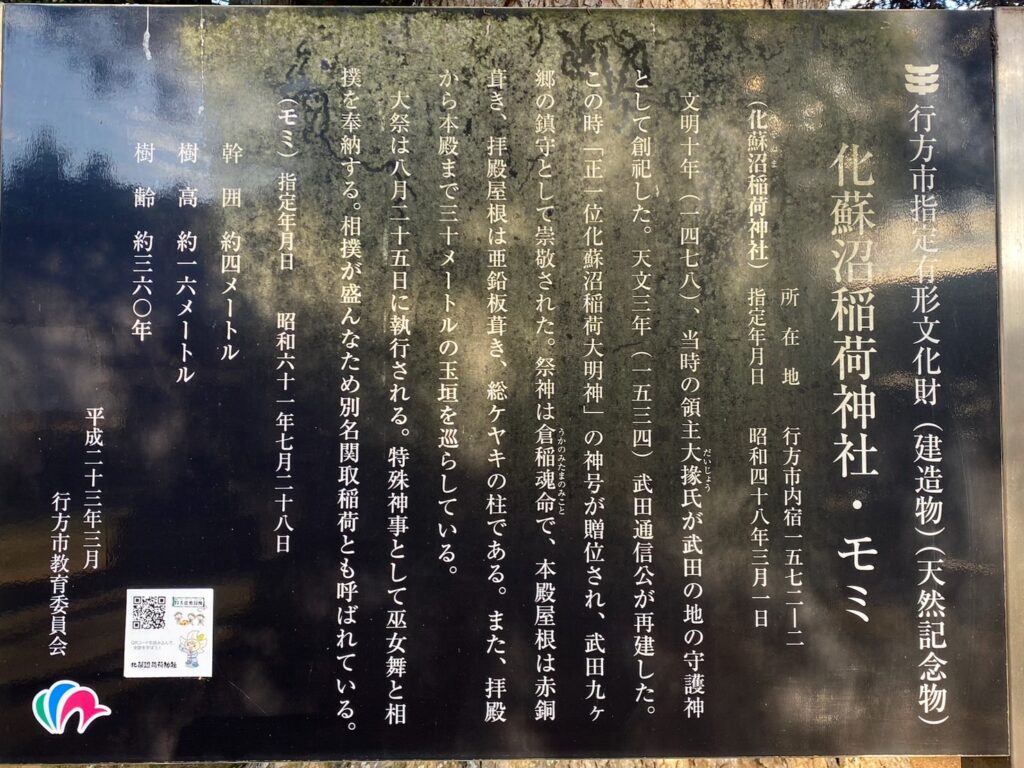 行方市指定有形文化財（建造物）（天然記念物）
化蘇沼稲荷神社・モミ
所在地　行方市内宿一五七二―二
（化蘇沼稲荷神社）指定年月日　昭和四十八年三月一日
文明十年（一四七八）、当時の領主大掾氏が武田の地の守護神
だいじょう
として創祀した。天文三年（一五三四）武田通信公が再建した。
この時「正一位化蘇沼稲荷大明神」の神号が贈位され、武田九ヶ
郷の鎮守として崇敬された。祭神は倉稲魂命で、本殿屋根は赤銅
うかのみたまのみこと
葺き、拝殿屋根は亜鉛板葺き、総ケヤキの柱である。また、拝殿
から本殿まで三十メートルの玉垣を巡らしている。
大祭は八月二十五日に執行される。特殊神事として巫女舞と相
撲を奉納する。相撲が盛んなため別名関取稲荷とも呼ばれている。
（モミ）指定年月日　昭和六十一年七月二十八日
幹　囲　約四メートル
樹　高　約一六メートル
樹　齢　約三六〇年
平成二十三年三月
行方市教育委員会